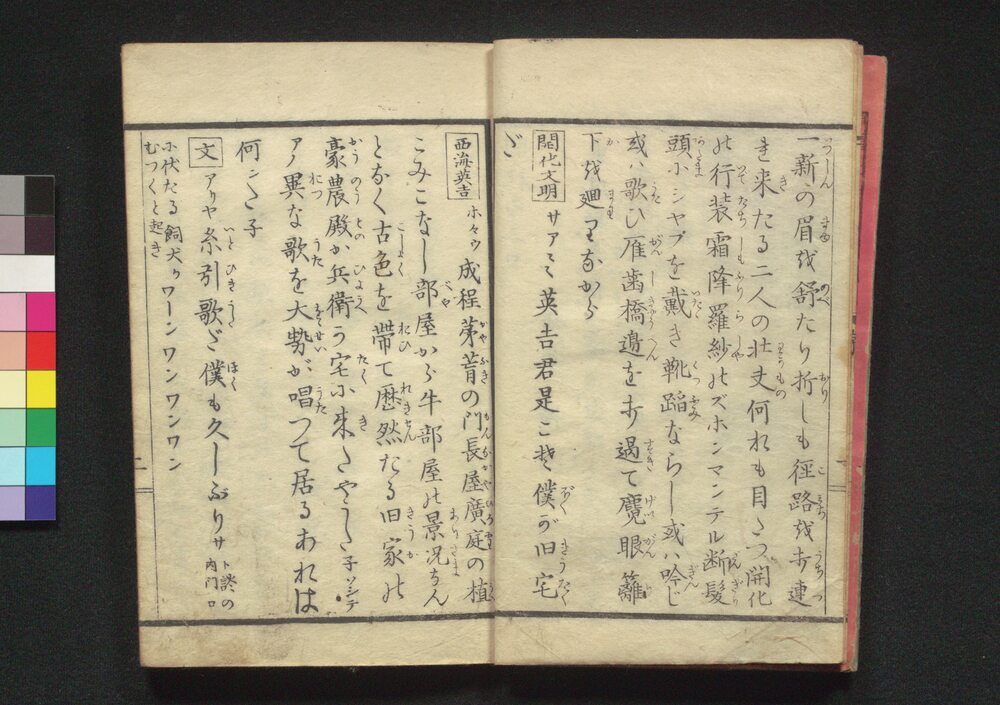 一新の眉を舒たり折しも徑路を打連
き来たる二人の壮士何れも目立つ開化
の行装霜降羅紗のズボンマンテル断髪
頭にシヤプを戴き靴踏ならし或ハ吟じ
或ハ歌ひ雁歯橋邉を打過て魔眼籬
下を廻りながら
開化文明 サア〳〵英吉君是こそ僕が旧宅
ざ
西海英吉 ホヽウ成程茅葺の門長屋廣庭の植
こみこなし部屋から牛部屋の景况ちん
となく古色を帯て歴然たる旧家の
豪農殿か兵衛う宅に来たやうた子ソシテ
アノ異な歌を大勢が唱つて居るあれは
何ンた子
文 アリヤ糸引歌ざ僕も久しぶりサ ト談の内門口
に伏たる飼犬ガワーンワンワンワン
むつくと起き